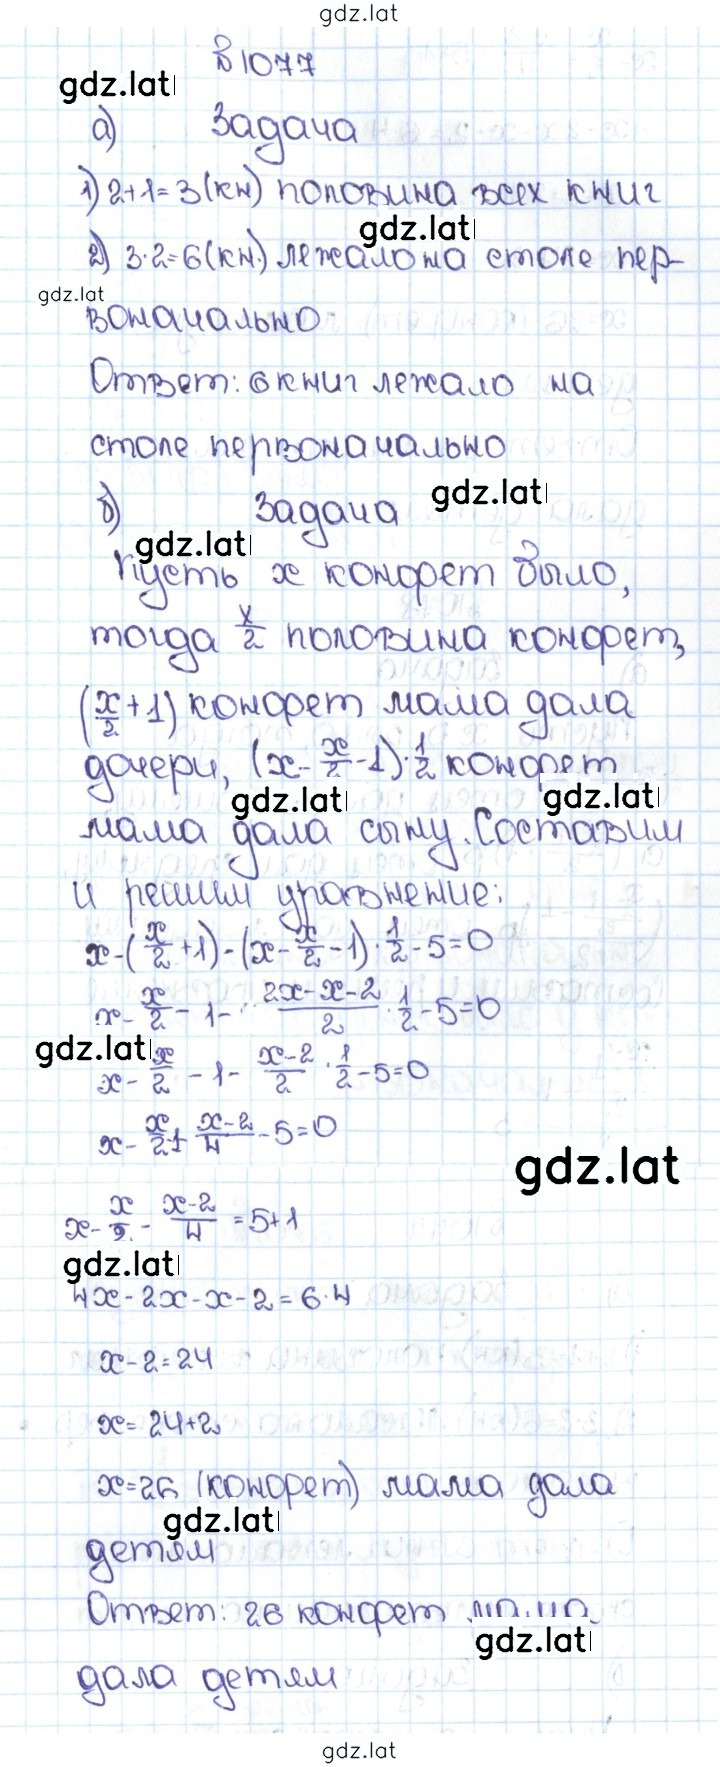 gdz.lat
в 1077
gdz.lat
а) Задача
1) 2+1=3(кн) половина всех книг
gdz.lat
2) 3·2=6(кн.) лежало на столе пер-
gdz.lat
воначально
Ответ: 6 книг лежало на
столе первоначально
gdz.lat
б) Задача
gdz.lat
Пусть x конфет было,
тогда x/2 половина конфет,
(x/2+1) конфет мама дала
дочери, (x-x/2-1)·1/2 конфет
gdz.lat gdz.lat
мама дала сыну. Составим
и решим уравнение:
x-(x/2+1)-(x-x/2-1)·1/2-5=0
x-x/2-1-(2x-x-2)/2·1/2-5=0
gdz.lat
x-x/2-1-(x-2)/2·1/2-5=0
x-x/2-1 (x-2)/4-5=0
gdz.lat
x-x/2-(x-2)/4=5+1
gdz.lat
4x-2x-x-2=6·4
x-2=24
x=24+2
x=26 (конфет) мама дала
gdz.lat
детям
Ответ: 26 конфет мама
gdz.lat
дала детям
gdz.lat